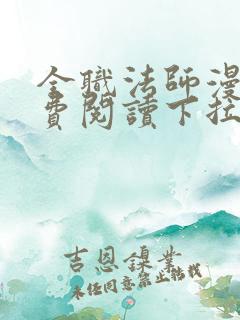 全職法師漫
費閱讀下拉
吉恩鎳業
未經同意禁止轉載